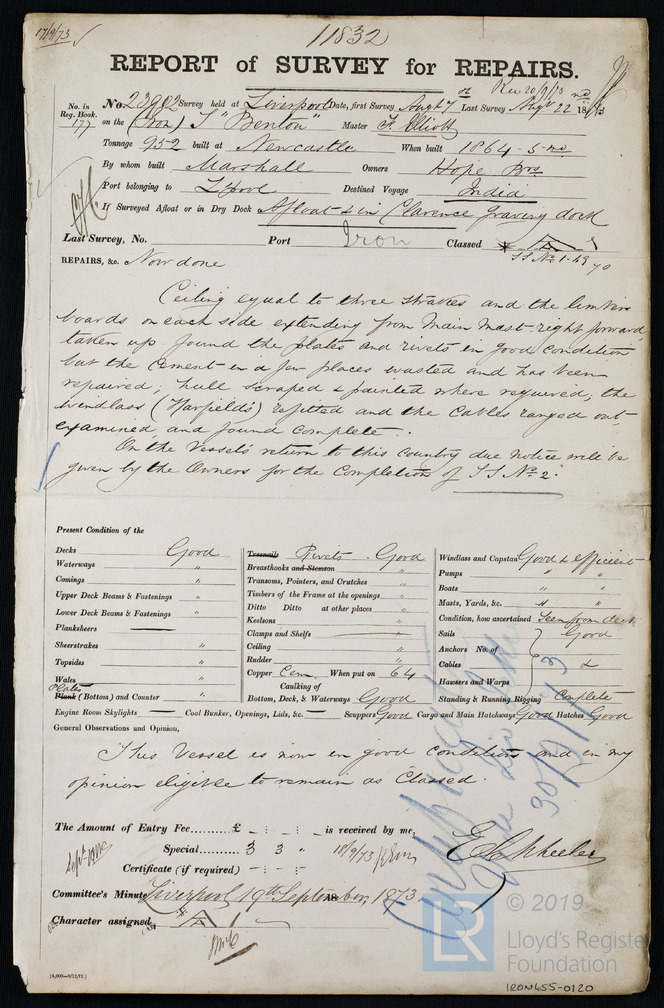 17/9/73
11832
REPORT of SURVEY for REPAIRS.
Rec 20/9/73
No. in Reg. Book. 177 No. 23902 Survey held at Liverpool Date, first Survey Augt 7 Last Survey Augt 22 1873
on the (Iron) S "Benton" Master F. Elliott
Tonnage 952 built at Newcastle When built 1864 - 5 mo
By whom built Marshall Owners Hope Bros
Port belonging to L'pool Destined Voyage India
If Surveyed Afloat or in Dry Dock Afloat & in Clarence Graving dock
Last Survey, No. Port Iron Classed A 1
SS No 1 - 70
REPAIRS, &c. Now done
Ceiling equal to three strakes and the limber
boards on each side extending from Main Mast right forward
taken up found the plates and rivets in good condition
but the cement in a few places wasted and has been
repaired; hull scraped & painted where required; the
windlass (Harfield's) refitted and the Cables ranged out
examined, and found complete.
On the Vessels return to this Country due notice will be
given by the Owners for the Completion of SS No 2.
Present Condition of the
Decks Good
Waterways "
Comings "
Upper Deck Beams & Fastenings "
Lower Deck Beams & Fastenings "
Planksheers —
Sheerstrakes "
Topsides "
Wales "
Plates
Plank (Bottom) and Counter "
Treenails Rivets Good
Breasthooks and Stemson "
Transoms, Pointers, and Crutches "
Timbers of the Frame at the openings "
Ditto Ditto at other places "
Keelsons "
Clamps and Shelfs "
Ceiling "
Rudder "
Copper Cem. When put on 64
Caulking of
Bottom, Deck, & Waterways Good
Windlass and Capstan Good & efficient
Pumps " "
Boats " "
Masts, Yards, &c. " "
Condition, how ascertained Seen from deck
Sails Good
Anchors No. of
Cables &
Hawsers and Warps
Standing & Running Rigging Complete
Engine Room Skylights — Coal Bunker, Openings, Lids, &c. — Scuppers Good Cargo and Main Hatchways Good Hatches Good
General Observations and Opinion,
This Vessel is now in good condition and in my
opinion eligible to remain as Classed.
The Amount of Entry Fee £ - : - : - is received by me,
Special 3 3 " 18/9/73
Certificate (if required) - : - : -
E. Wheeler
Committee's Minute Liverpool 19th September, 1873.
Character assigned A 1
30/9/73
(4,000—9/12/72.)
LR
© 2019
Lloyd's Register
Foundation
IRON455-0120